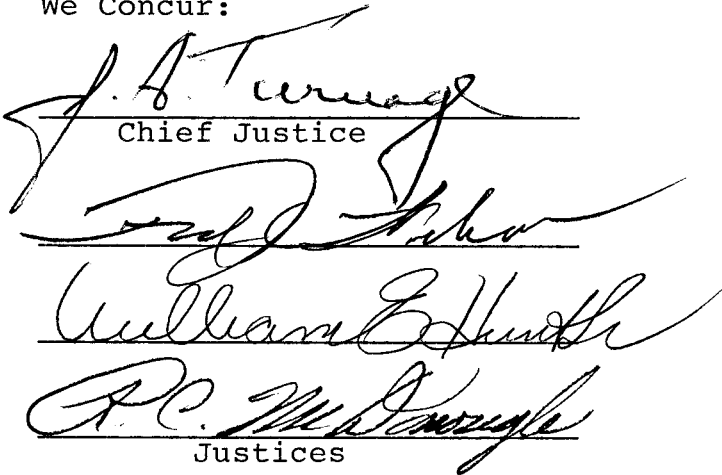 We Concur:
J. A. Turnage
Chief Justice
William E Hunt Sr
R. C. McDonough
Justices